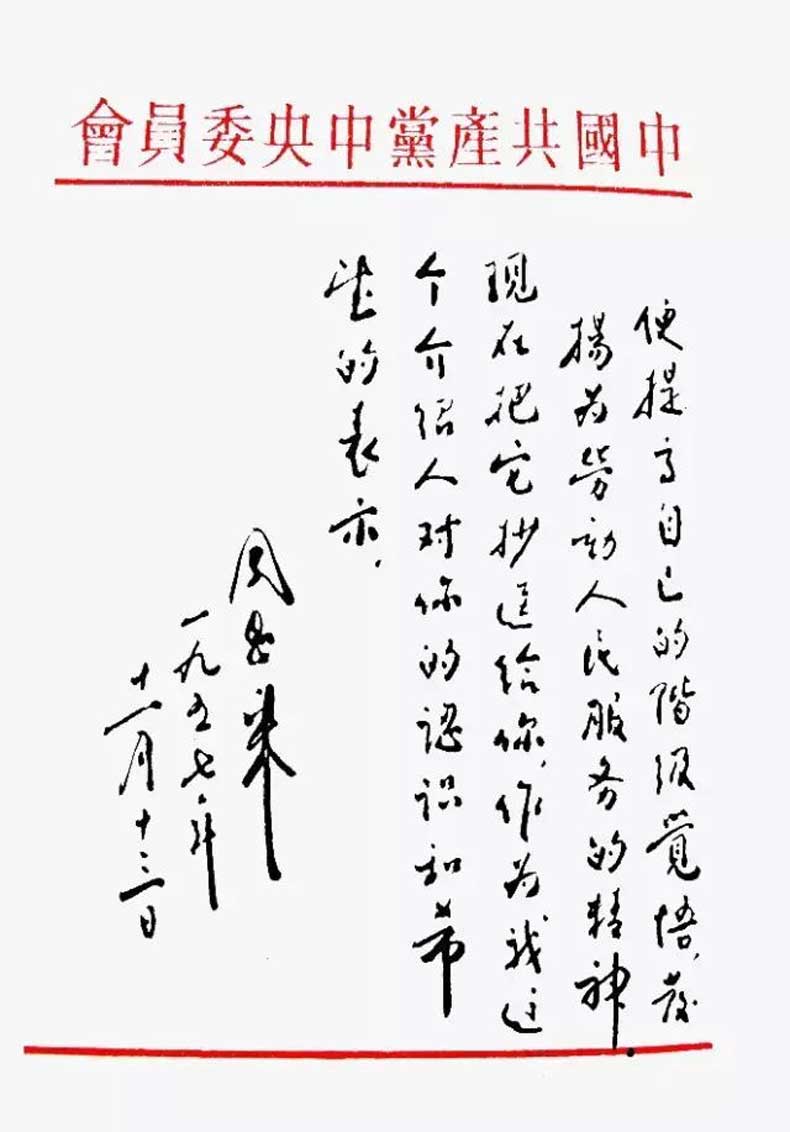 中國共產黨中央委員會
便提高自己的階级覺悟，發
揚为勞动人民服务的精神。
现在把它抄送给你，作为我这
个介绍人对你的認识和希
望的表示。
周恩来
一九五七年
十一月十三日